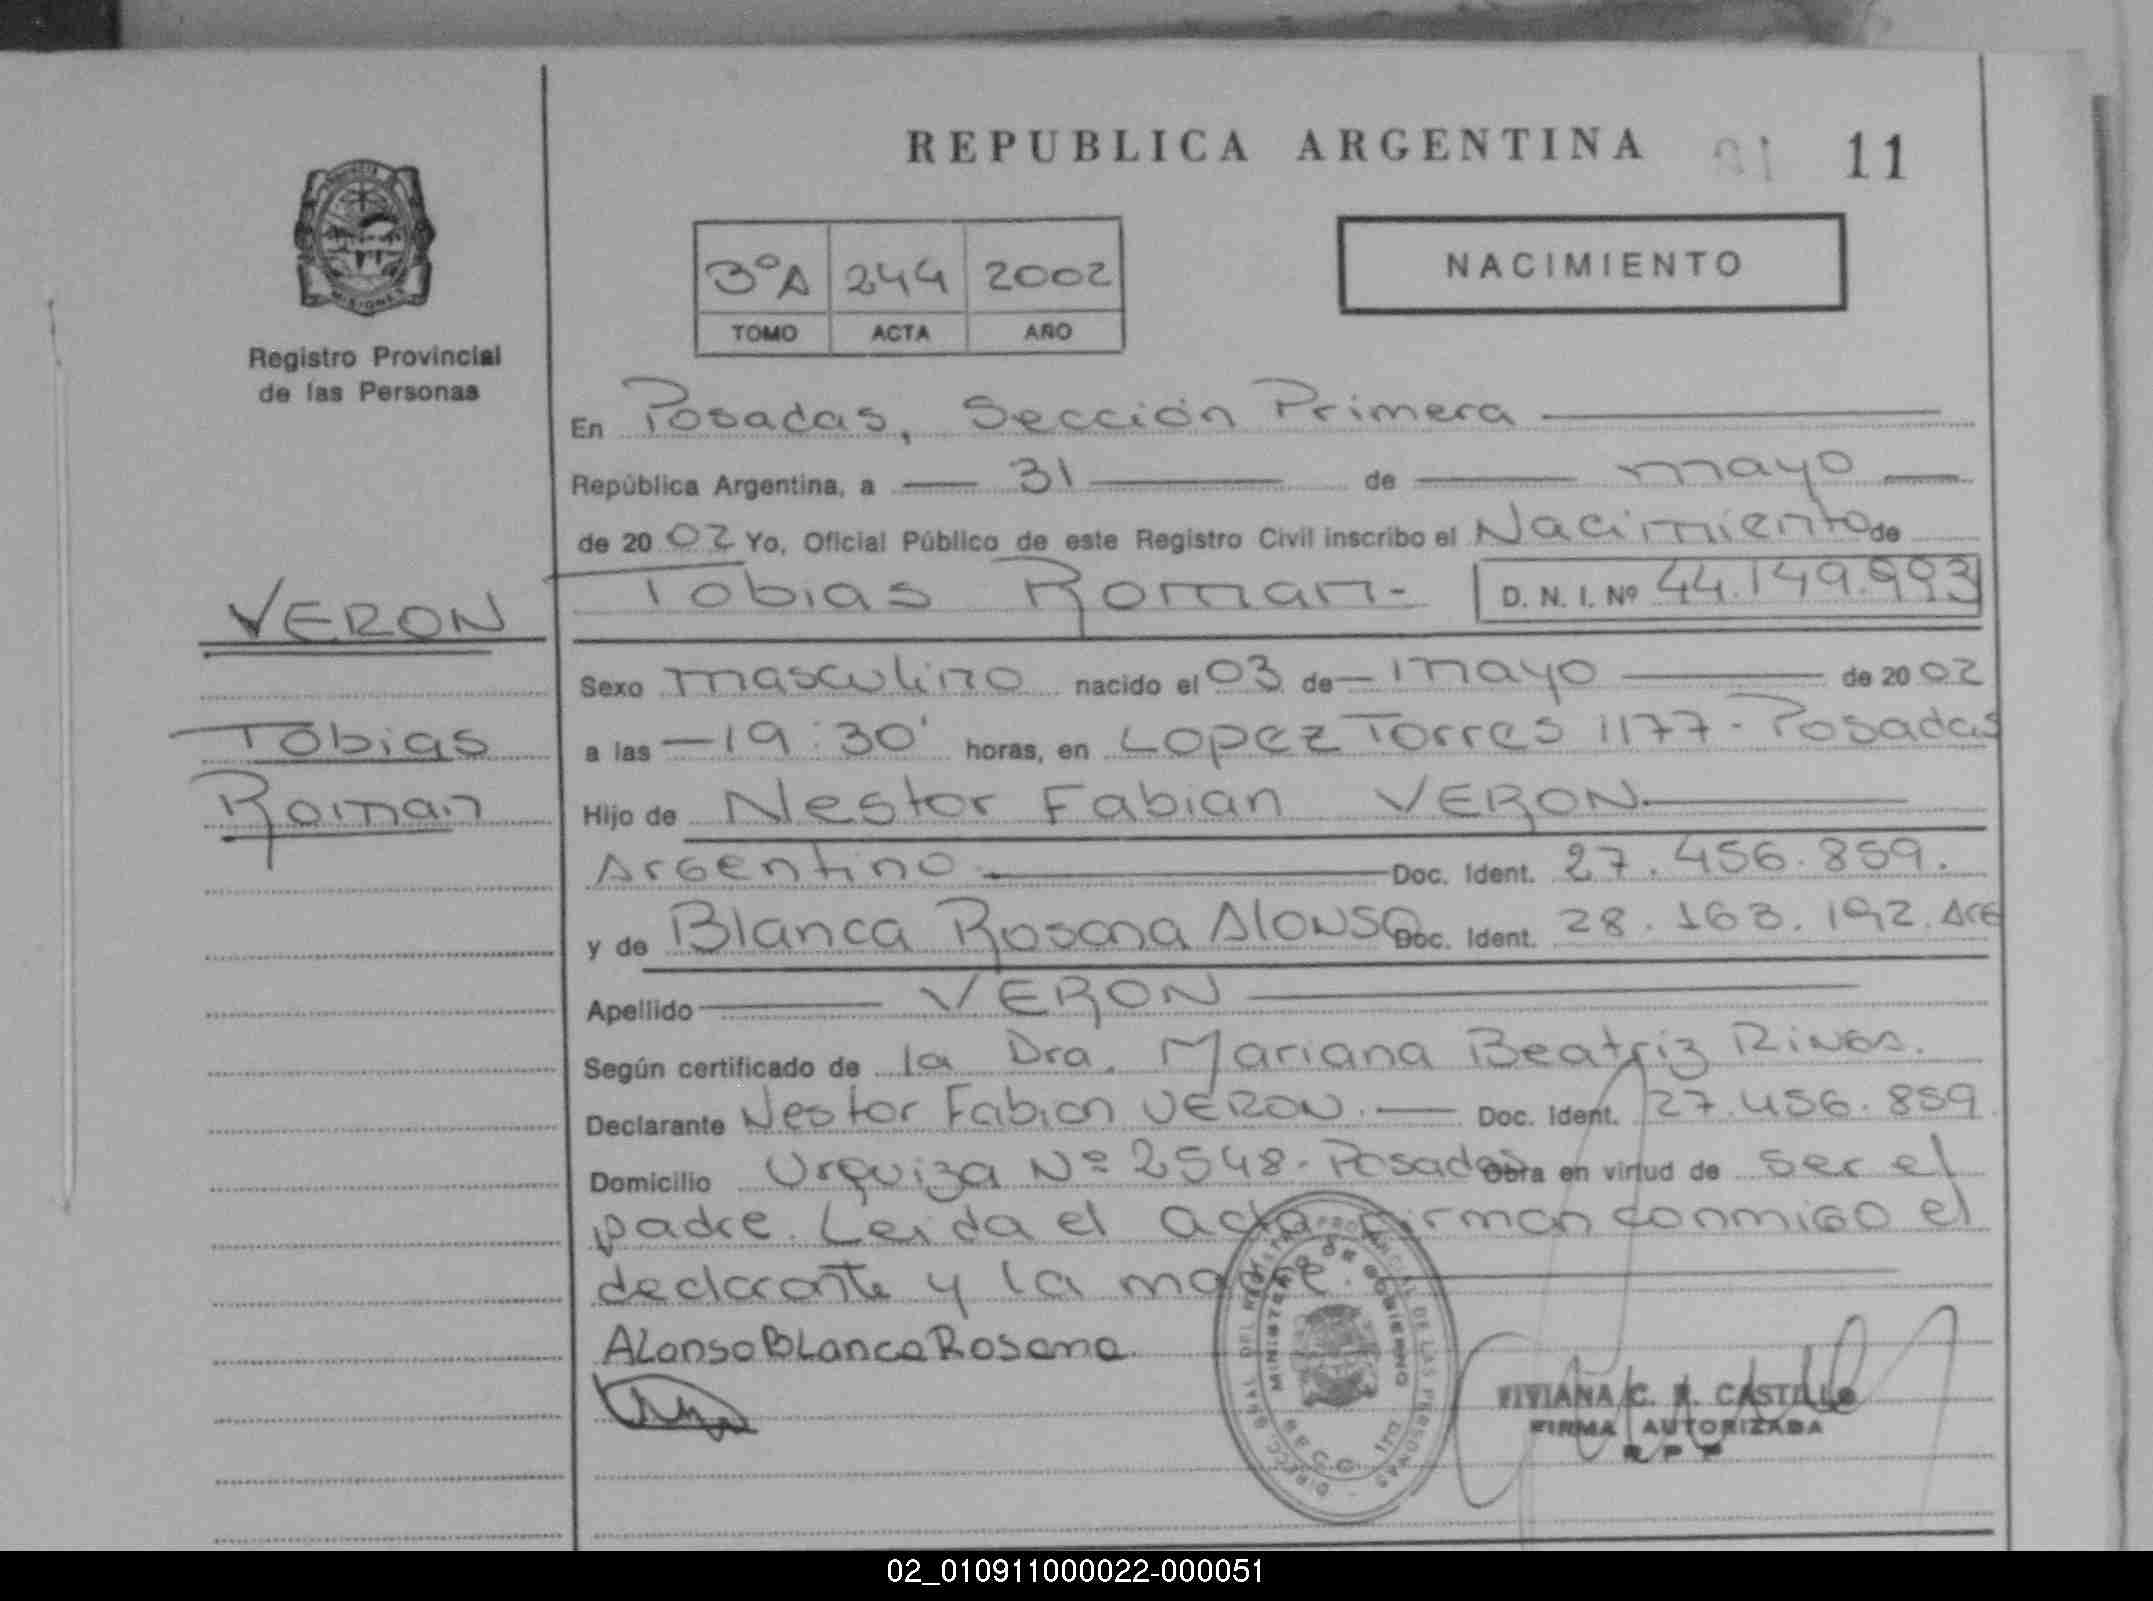 REPUBLICA ARGENTINA 11
3ºA 244 2002
TOMO ACTA AÑO
NACIMIENTO
MISIONES
Registro Provincial
de las Personas
En Posadas, Sección Primera
República Argentina, a 31 de mayo
de 2002 Yo, Oficial Público de este Registro Civil inscribo el Nacimiento de
Tobias Roman- D. N. I. Nº 44.149.993
VERON
Tobias
Roman
Sexo masculino nacido el 03 de mayo de 2002
a las 19:30' horas, en Lopez Torres 1177 - Posadas
Hijo de Nestor Fabian VERON
Argentino Doc. Ident. 27.456.859.
y de Blanca Rosana Alonso Doc. Ident. 28.163.192. Arg
Apellido VERON
Según certificado de la Dra. Mariana Beatriz Rivas.
Declarante Nestor Fabian VERON. Doc. Ident. 27.456.859
Domicilio Urquiza Nº 2548. Posadas Obra en virtud de ser el
padre. Leida el acta firman conmigo el
declarante y la madre.
Alonso Blanca Rosana
DIRECC. GRAL. DEL REGISTRO PROVINCIAL DE LAS PERSONAS
MINISTERIO DE GOBIERNO
VIVIANA C. CASTILLO
FIRMA AUTORIZADA
R P P
02_010911000022-000051